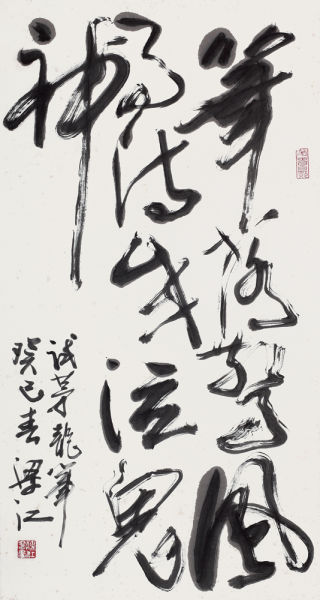 筆落驚風
雨詩成泣鬼
神
試茅龍筆
癸巳春梁江